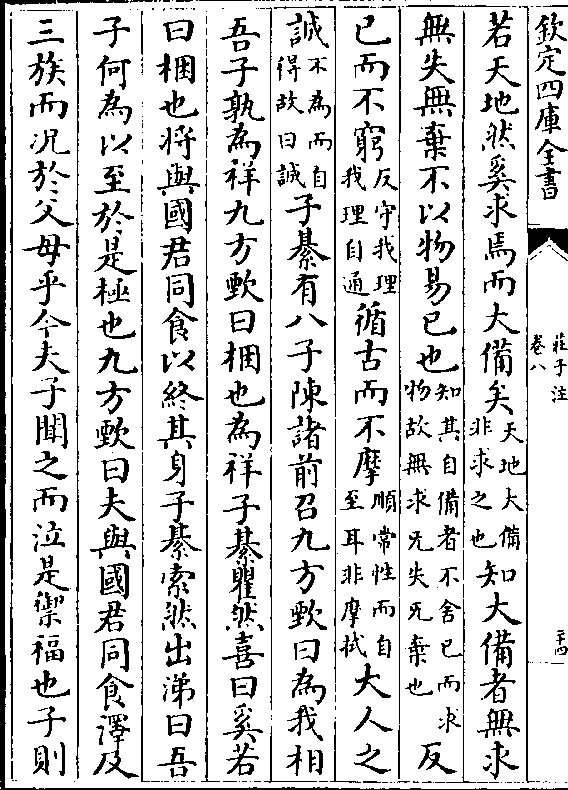 欽定四庫全書
莊子注
卷八
二十四
若天地然奚求焉而大備矣天地大備非求之也知大備者無求
無失無棄不以物易己也知其自備者不舍已而求物故無求无失无棄也反
已而不窮反守我理我理自通循古而不摩順常性而自至耳非摩拭大人之
誠不為而自得故曰誠子綦有八子陳諸前召九方歅曰為我相
吾子孰為祥九方歅曰梱也為祥子綦瞿然喜曰奚若
曰梱也將與國君同食以終其身子綦索然出涕曰吾
子何為以至於是極也九方歅曰夫與國君同食澤及
三族而况於父母乎今夫子聞之而泣是禦福也子則